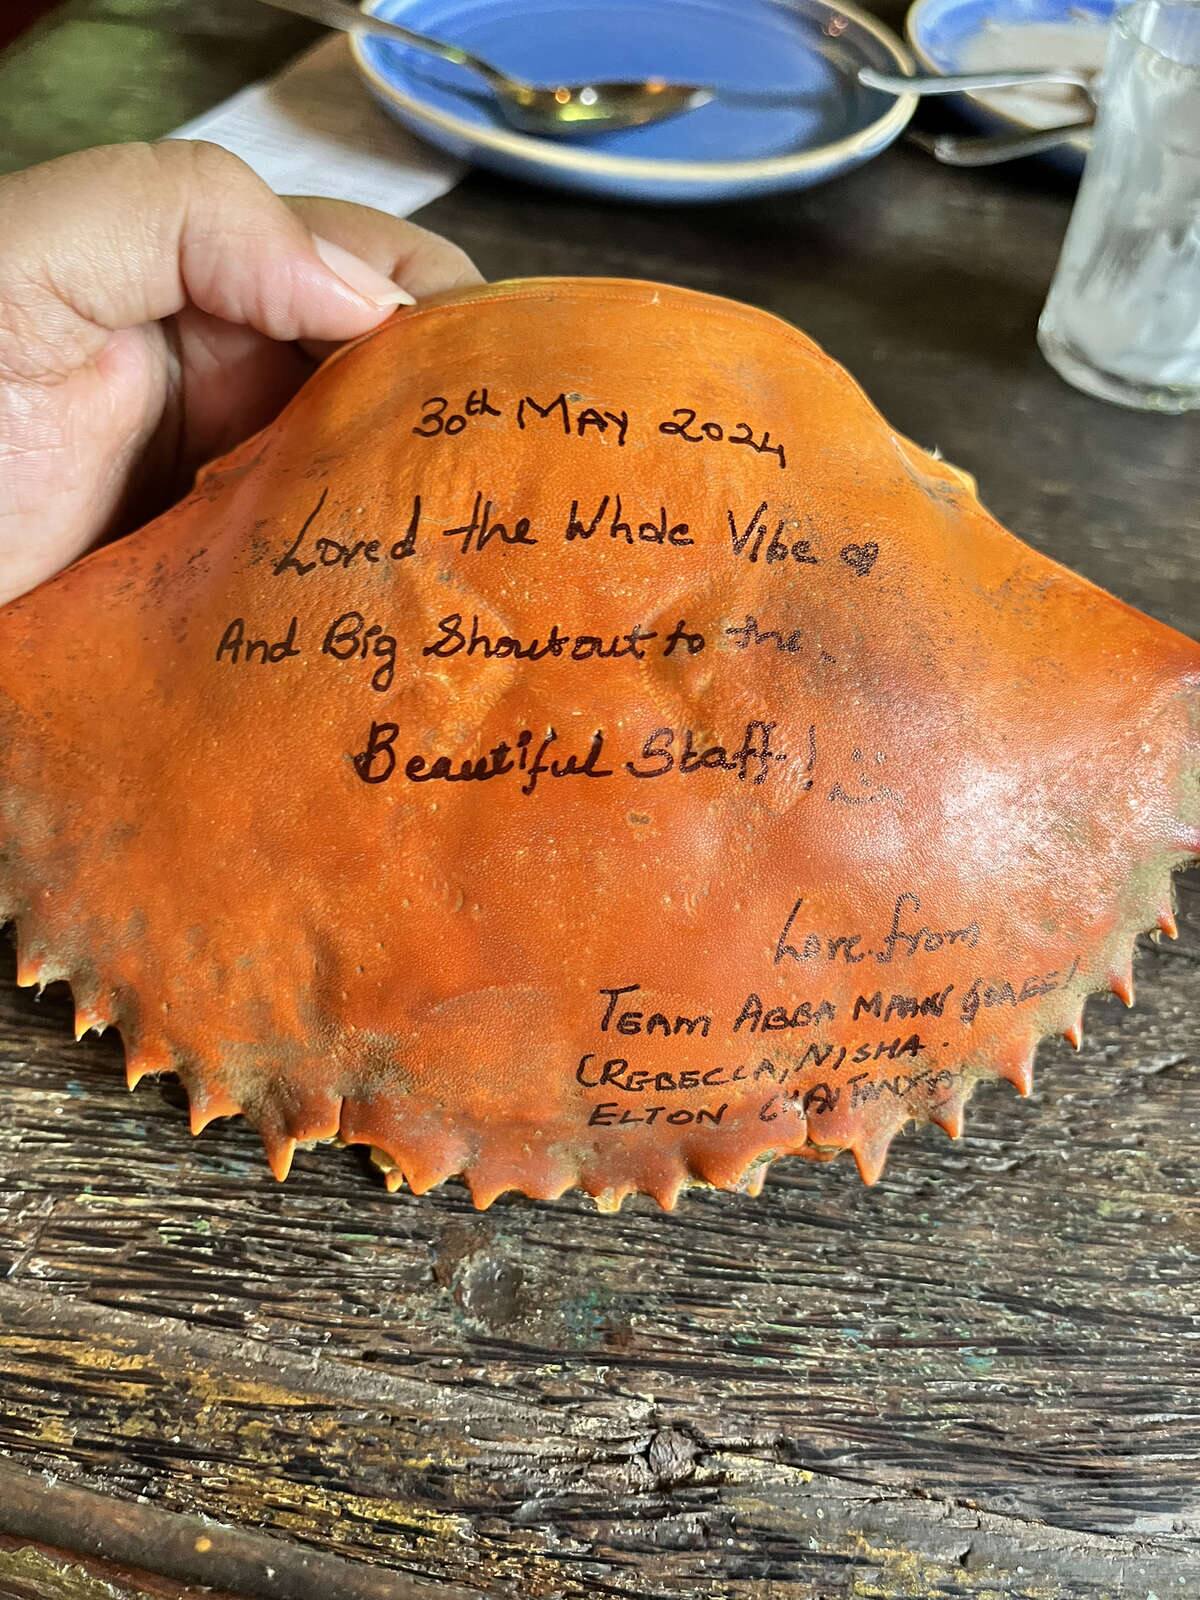 30th MAY 2024
Loved the Whole Vibe
And Big Shoutout to the
Beautiful Staff!
Love from
TEAM ABBA MAAN
(REBECCA, NISHA
ELTON CHAITANYA